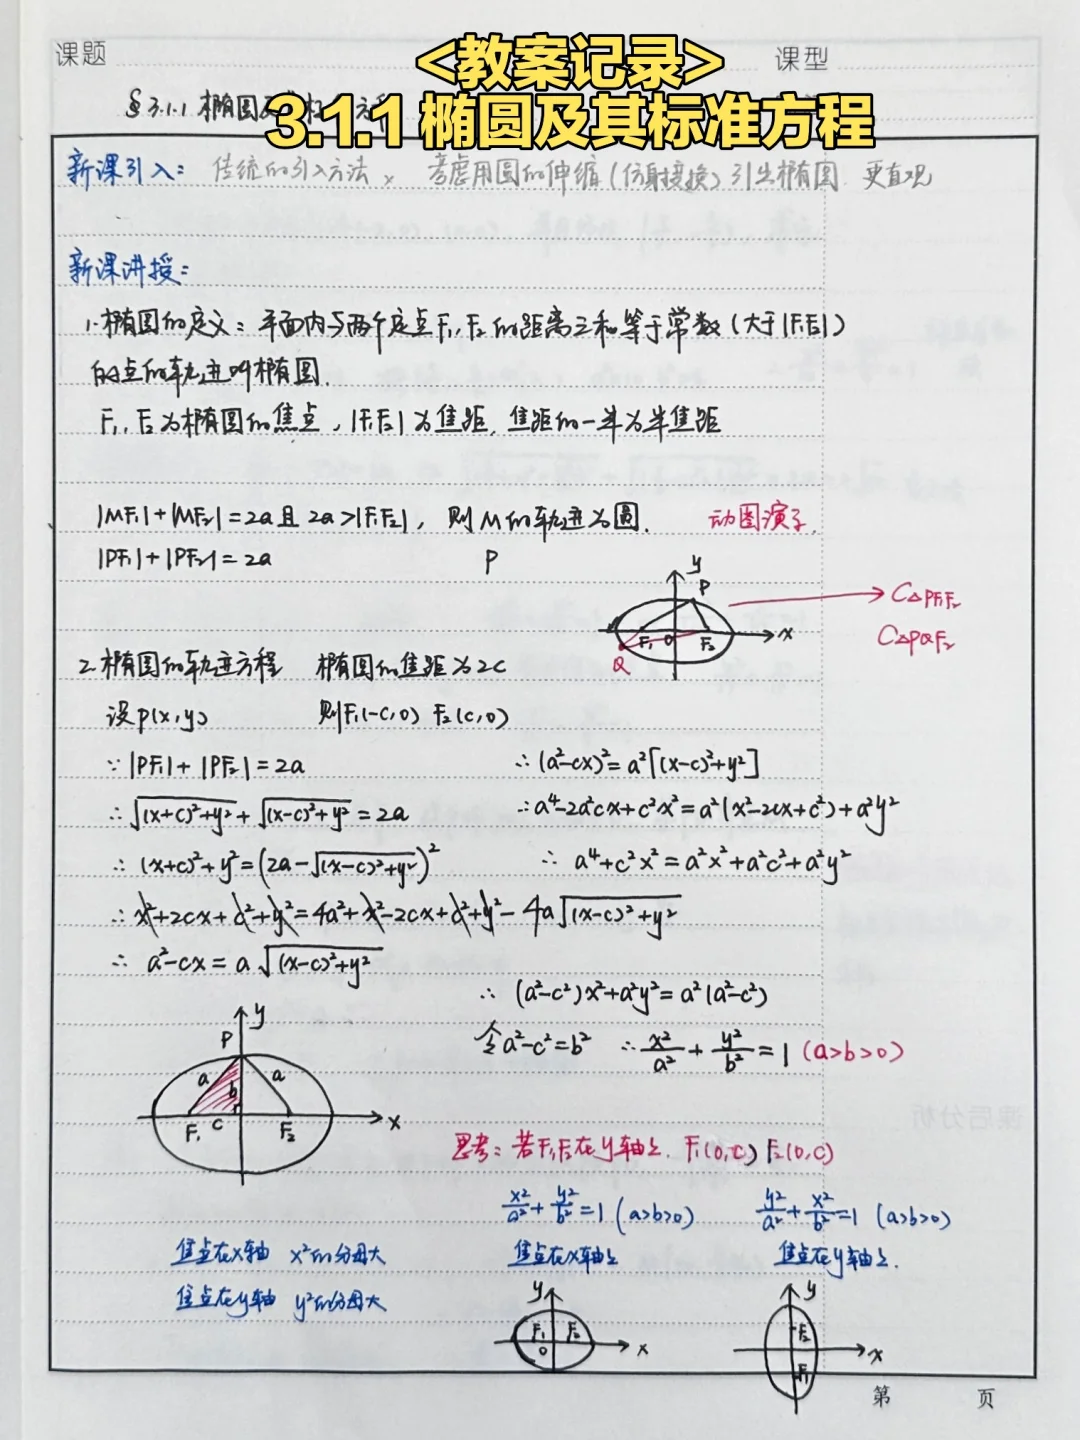 课题
<教案记录>
课型
3.1.1 椭圆及其标准方程
§3.1.1 椭圆及
新课引入: 传统的引入方法 × 考虑用圆的伸缩(仿射换)引出椭圆 更直观
新课讲授:
1.椭圆的定义: 平面内与两个定点F₁,F₂的距离之和等于常数(大于|F₁F₂|)
的点的轨迹叫椭圆.
F₁,F₂为椭圆的焦点,|F₁F₂|为焦距,焦距的一半为半焦距
|MF₁|+|MF₂|=2a且2a>|F₁F₂|, 则M的轨迹为圆. 动图演示.
|PF₁|+|PF₂|=2a P
y
P
C△PF₁F₂
F₁ O F₂ x
C△PQF₂
Q
2.椭圆的轨迹方程 椭圆的焦距为2c
设P(x,y) 则F₁(-c,0) F₂(c,0)
∵|PF₁|+|PF₂|=2a ∴(a²-cx)²=a²[(x-c)²+y²]
∴√((x+c)²+y²)+√((x-c)²+y²)=2a ∴a⁴-2a²cx+c²x²=a²(x²-2cx+c²)+a²y²
∴(x+c)²+y²=(2a-√((x-c)²+y²))² ∴a⁴+c²x²=a²x²+a²c²+a²y²
∴x²+2cx+c²+y²=4a²+x²-2cx+c²+y²-4a√((x-c)²+y²)
∴a²-cx=a√((x-c)²+y²)
∴(a²-c²)x²+a²y²=a²(a²-c²)
令a²-c²=b² ∴x²/a²+y²/b²=1(a>b>0)
y
P
a a
b
F₁ c F₂ x
思考:若F₁F₂在y轴上. F₁(0,c) F₂(0,c)
x²/a²+y²/b²=1(a>b>0) y²/a²+x²/b²=1(a>b>0)
焦点在x轴 x²的分母大 焦点在x轴上 焦点在y轴上.
焦点在y轴 y²的分母大
y
F₁ F₂
O x
y
F₂
x
F₁
第 页
课后分析